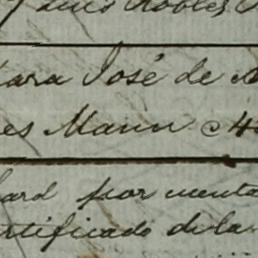 Luis Robles
lara José de
es Mann c 4
ard por cuenta
rtificado de la